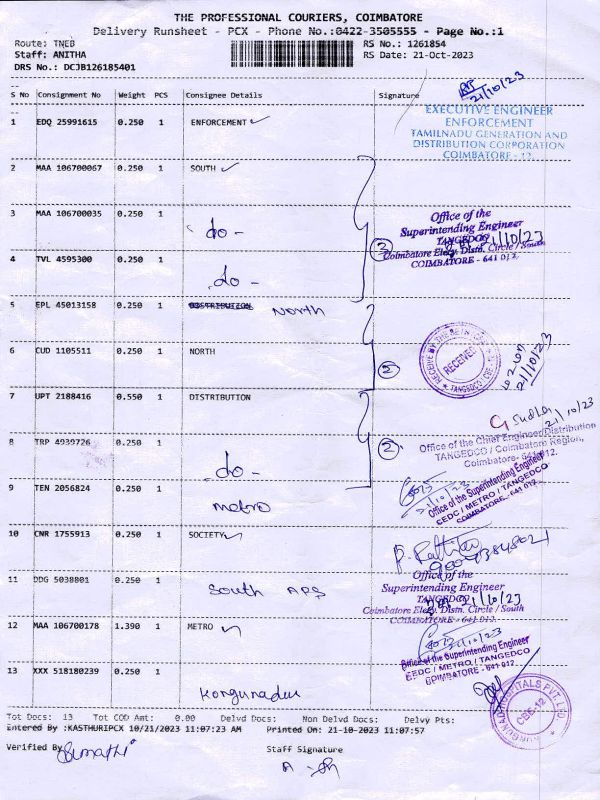 THE PROFESSIONAL COURIERS, COIMBATORE
Delivery Runsheet - PCX - Phone No.:0422-3505555 - Page No.:1
Route: TNEB RS No.: 1261854
Staff: ANITHA RS Date: 21-Oct-2023
DRS No.: DCJB126185401
S No Consignment No Weight PCS Consignee Details Signature
21/10/23
1 EDQ 25991615 0.250 1 ENFORCEMENT
EXECUTIVE ENGINEER
ENFORCEMENT
TAMILNADU GENERATION AND
DISTRIBUTION CORPORATION
COIMBATORE - 12.
2 MAA 106700067 0.250 1 SOUTH
3 MAA 106700035 0.250 1 - do -
Office of the
Superintending Engineer
TANGEDCO
21/10/23
Coimbatore Elecy. Distn. Circle / South
COIMBATORE - 641 012.
3
4 TVL 4595300 0.250 1 - do -
5 EPL 45013158 0.250 1 DISTRIBUTION North
6 CUD 1105511 0.250 1 NORTH
2
RECEIVED
TANGEDCO
21/10/23
7 UPT 2188416 0.550 1 DISTRIBUTION
G Sudha
21/10/23
Office of the Chief Engineer/Distribution
TANGEDCO / Coimbatore Region,
Coimbatore- 641 012.
8 TRP 4939726 0.250 1 - do -
2
9 TEN 2056824 0.250 1 metro
21/10/23
Office of the Superintending Engineer
CEDC / METRO / TANGEDCO
COIMBATORE - 641 012
10 CNR 1755913 0.250 1 SOCIETY
11 DDG 5038801 0.250 1 South APS
Office of the
Superintending Engineer
TANGEDCO
21/10/23
Coimbatore Elecy. Distn. Circle / South
COIMBATORE - 641 012.
12 MAA 106700178 1.390 1 METRO
21/10/23
Office of the Superintending Engineer
CEDC / METRO / TANGEDCO
COIMBATORE - 641 012.
13 XXX 518180239 0.250 1 Kongunadu
HOSPITALS PVT. LTD.
CBE-12
Tot Docs: 13 Tot COD Amt: 0.00 Delvd Docs: Non Delvd Docs: Delvy Pts:
Entered By :KASTHURIPCX 10/21/2023 11:07:23 AM Printed On: 21-10-2023 11:07:57
Verified By Staff Signature